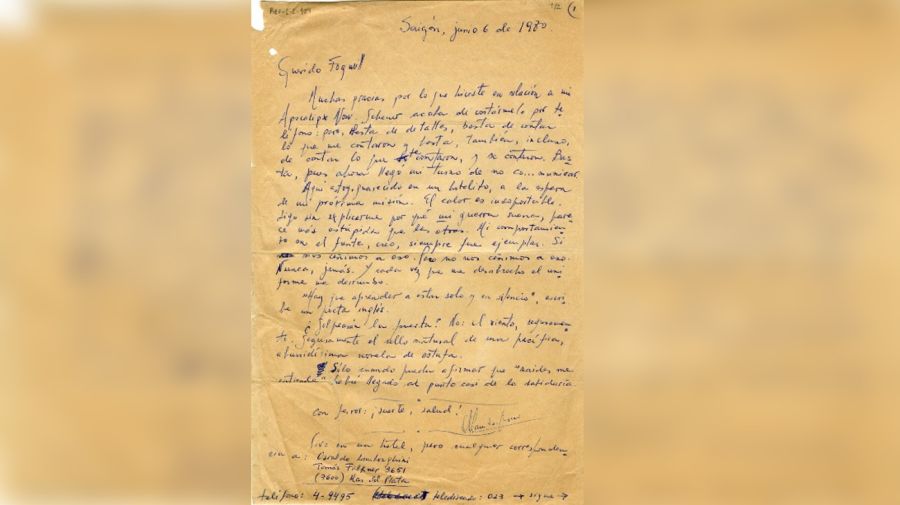 Saigón, junio 6 de 1980.
Querido Fogwill
Muchas gracias por lo que hiciste en relación a mi
Apocalipx Now. Scheuer acaba de contármelo por te
léfono: pero, basta de detalles, basta de contar
lo que me contaron y basta, también, incluso,
de contar lo que te contaron, y se contaron. Bas
ta, pues ahora llegó mi turno de no co... municar.
Aquí estoy, guarecido en un hotelito, a la espera
de mi próxima misión. El calor es insoportable.
Sigo sin explicarme por qué mi guerra suena, pare
ce más estúpida que las otras. Mi comportamien
to en el frente, creo, siempre fue ejemplar. Si
nos ceñimos a eso. Pero no nos ceñimos a eso.
Nunca, jamás. Y cada vez que me desabrocho el uni
forme me derrumbo.
"Hay que aprender a estar solo y en silencio", escri
be un poeta inglés.
¿Golpearon la puerta? No: el viento, seguramen
te. Seguramente el sello natural de una pacífica,
aburridísima novela de estafa.
Sólo cuando pueda afirmar que "nadie me
entiende" habré llegado al punto casi de la sabiduría
con favor: ¡suerte, salud!
en un hotel, pero cualquier corresponden
cia a: Osvaldo Lamborghini
Tomás Falkner 3651
(7600) Mar del Plata
teléfono: 4-9495 telediscado: 023 → sigue →